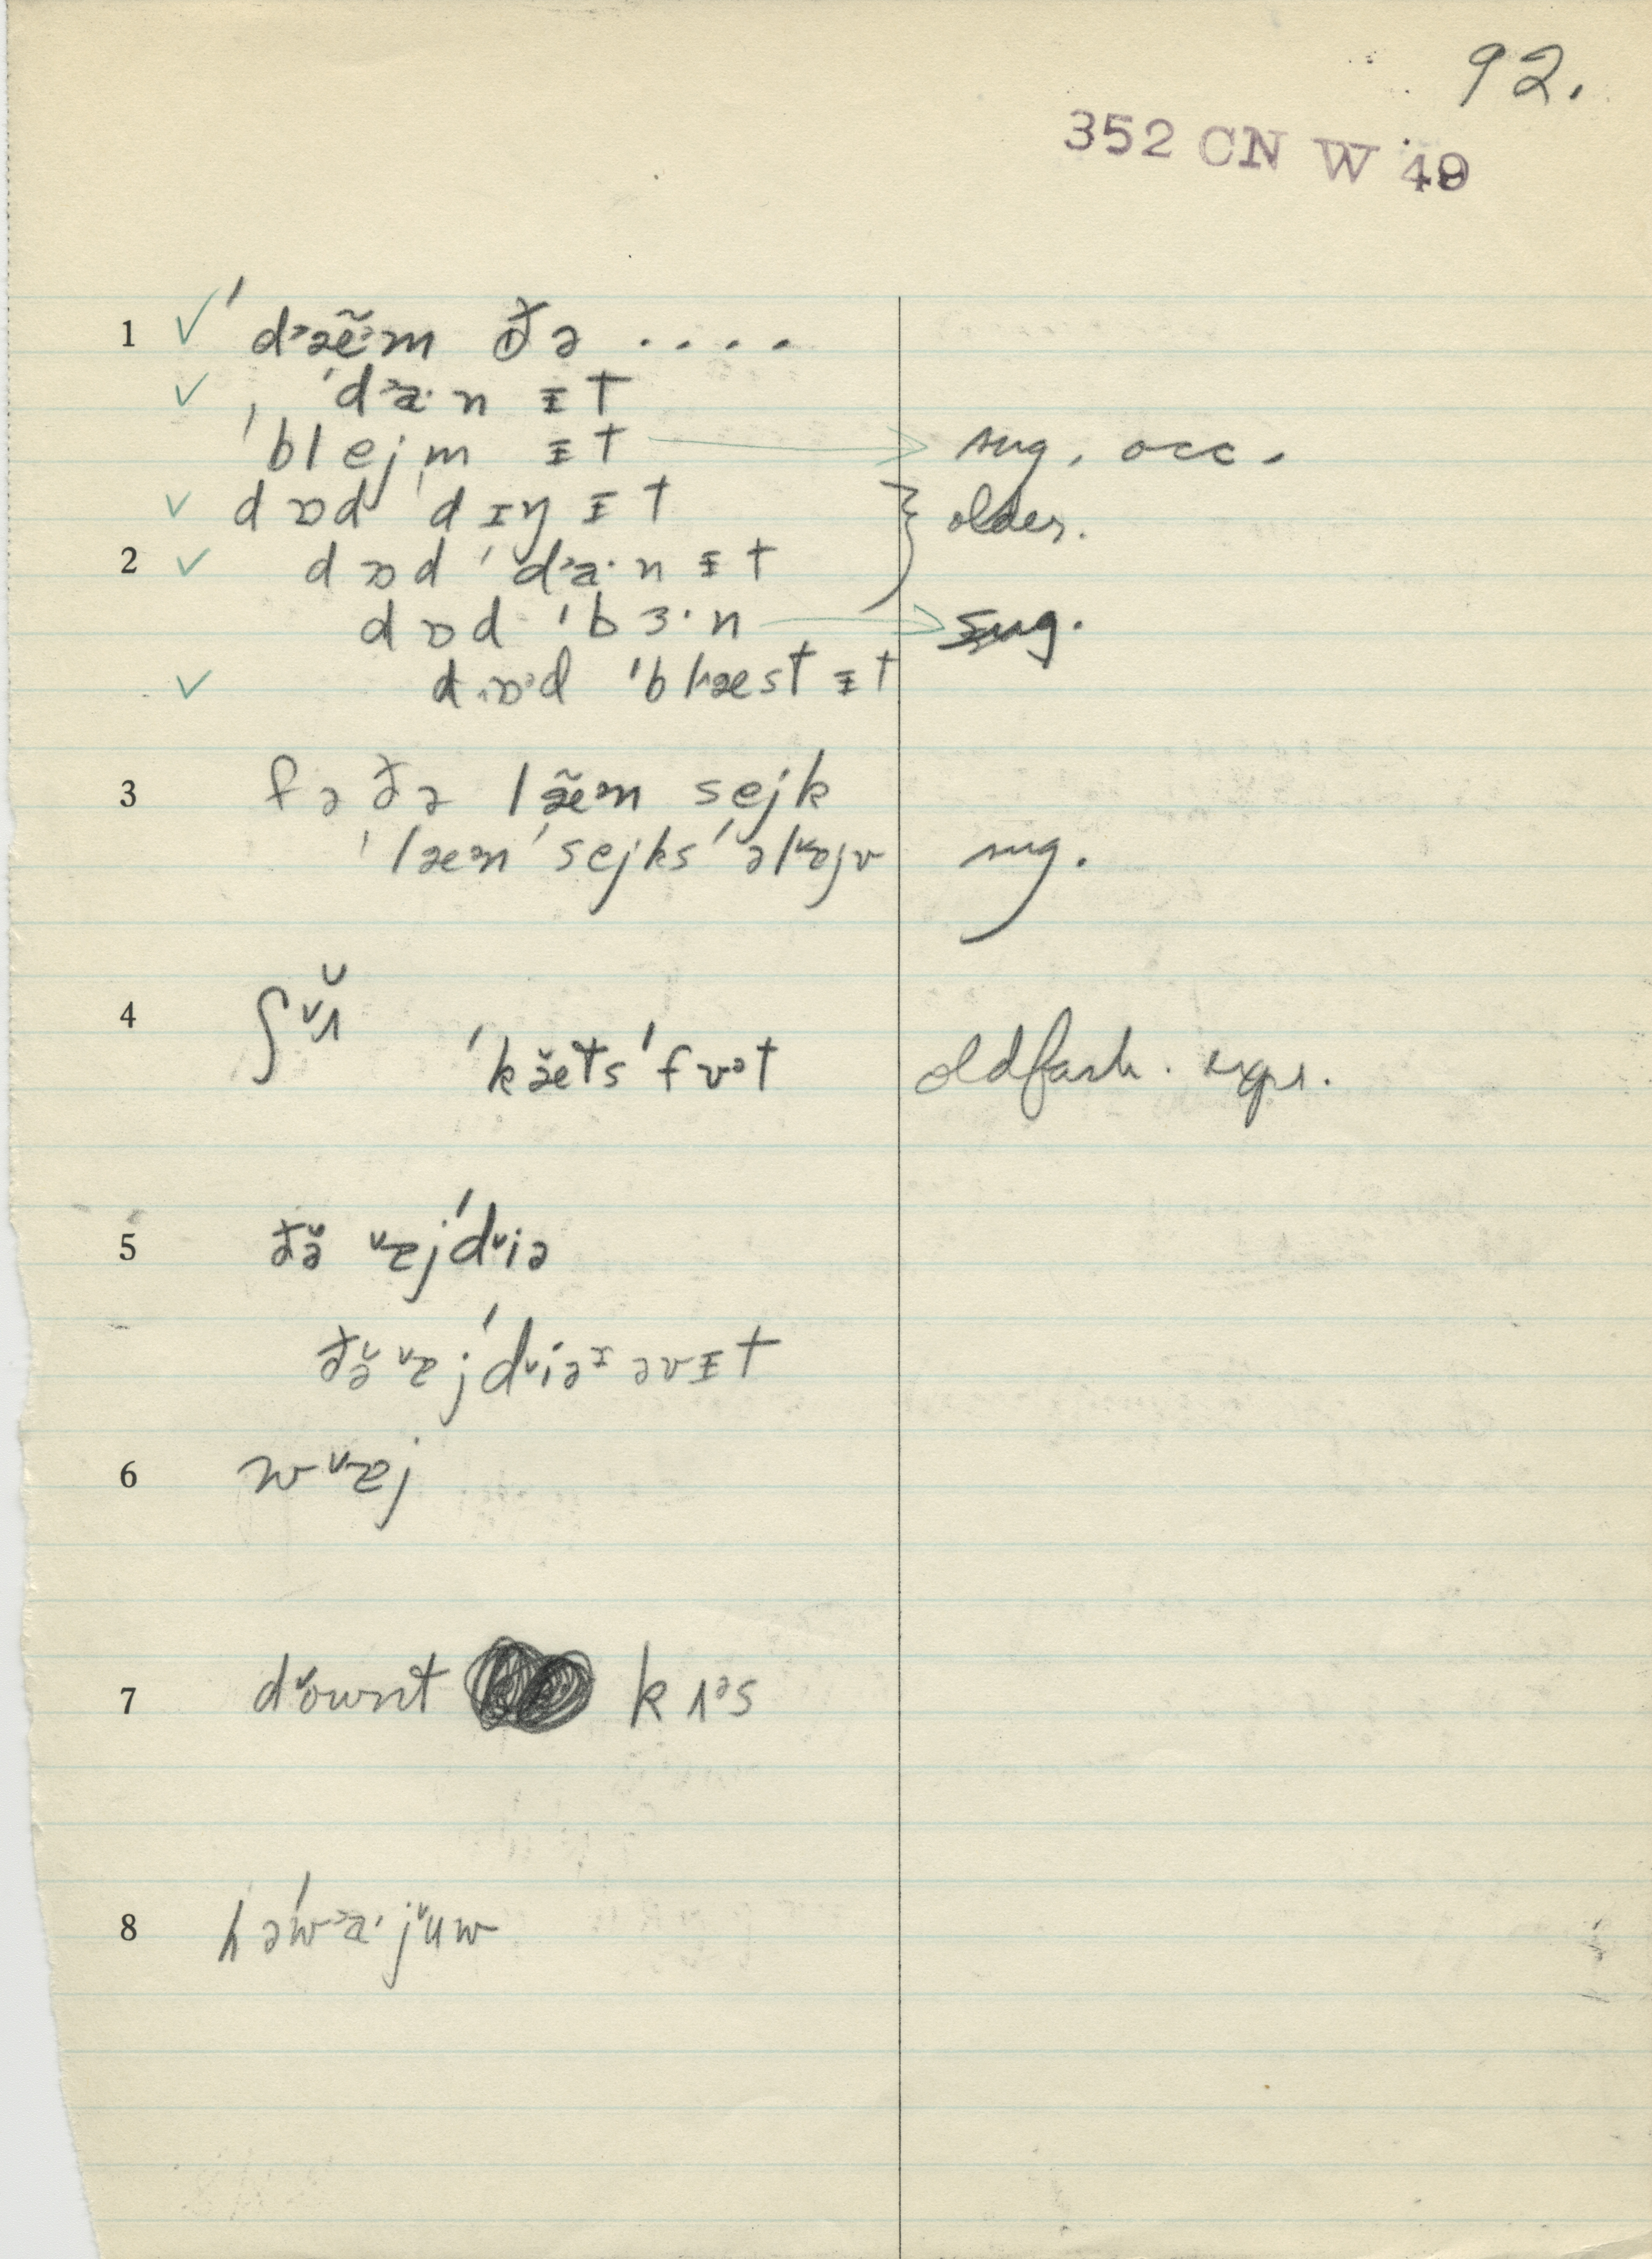 92.
352 CN W 49
1 ✓ ˈd˃æ̃˃m ðə ....
✓ ˈd˃a·n ɪt
ˈblejm ɪt → sug. occ.
✓ dɒd ˈdɪŋ ɪt } older.
2 ✓ dɒd ˈd˃a·n ɪt
dɒd ˈbɜ·n → sug.
✓ dɒ˃d ˈblæst ɪt
3 fə ðə læ̃˃n sejk
ˈlæ˃n ˈsejks ə ˈlɐjv sug.
4 ʃʌ̆
ˈkæ̆ts ˈfʊ˃t oldfash. expr.
5 ðə̆ ɐjˈdiə
ðə̆ ɐjˈdiəɪ əvɪt
6 wɐj
7 downt kʌ˃s
8 həˈw˃a· juw